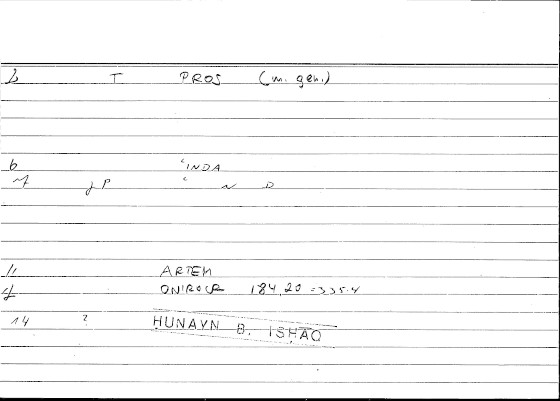 b T PROS (m. gen.)
6 ʿINDA
jP ʿ N D
11 ARTEM
ONIROCR 184,20 = 335.4
14 ? ḤUNAYN B. ISḤĀQ